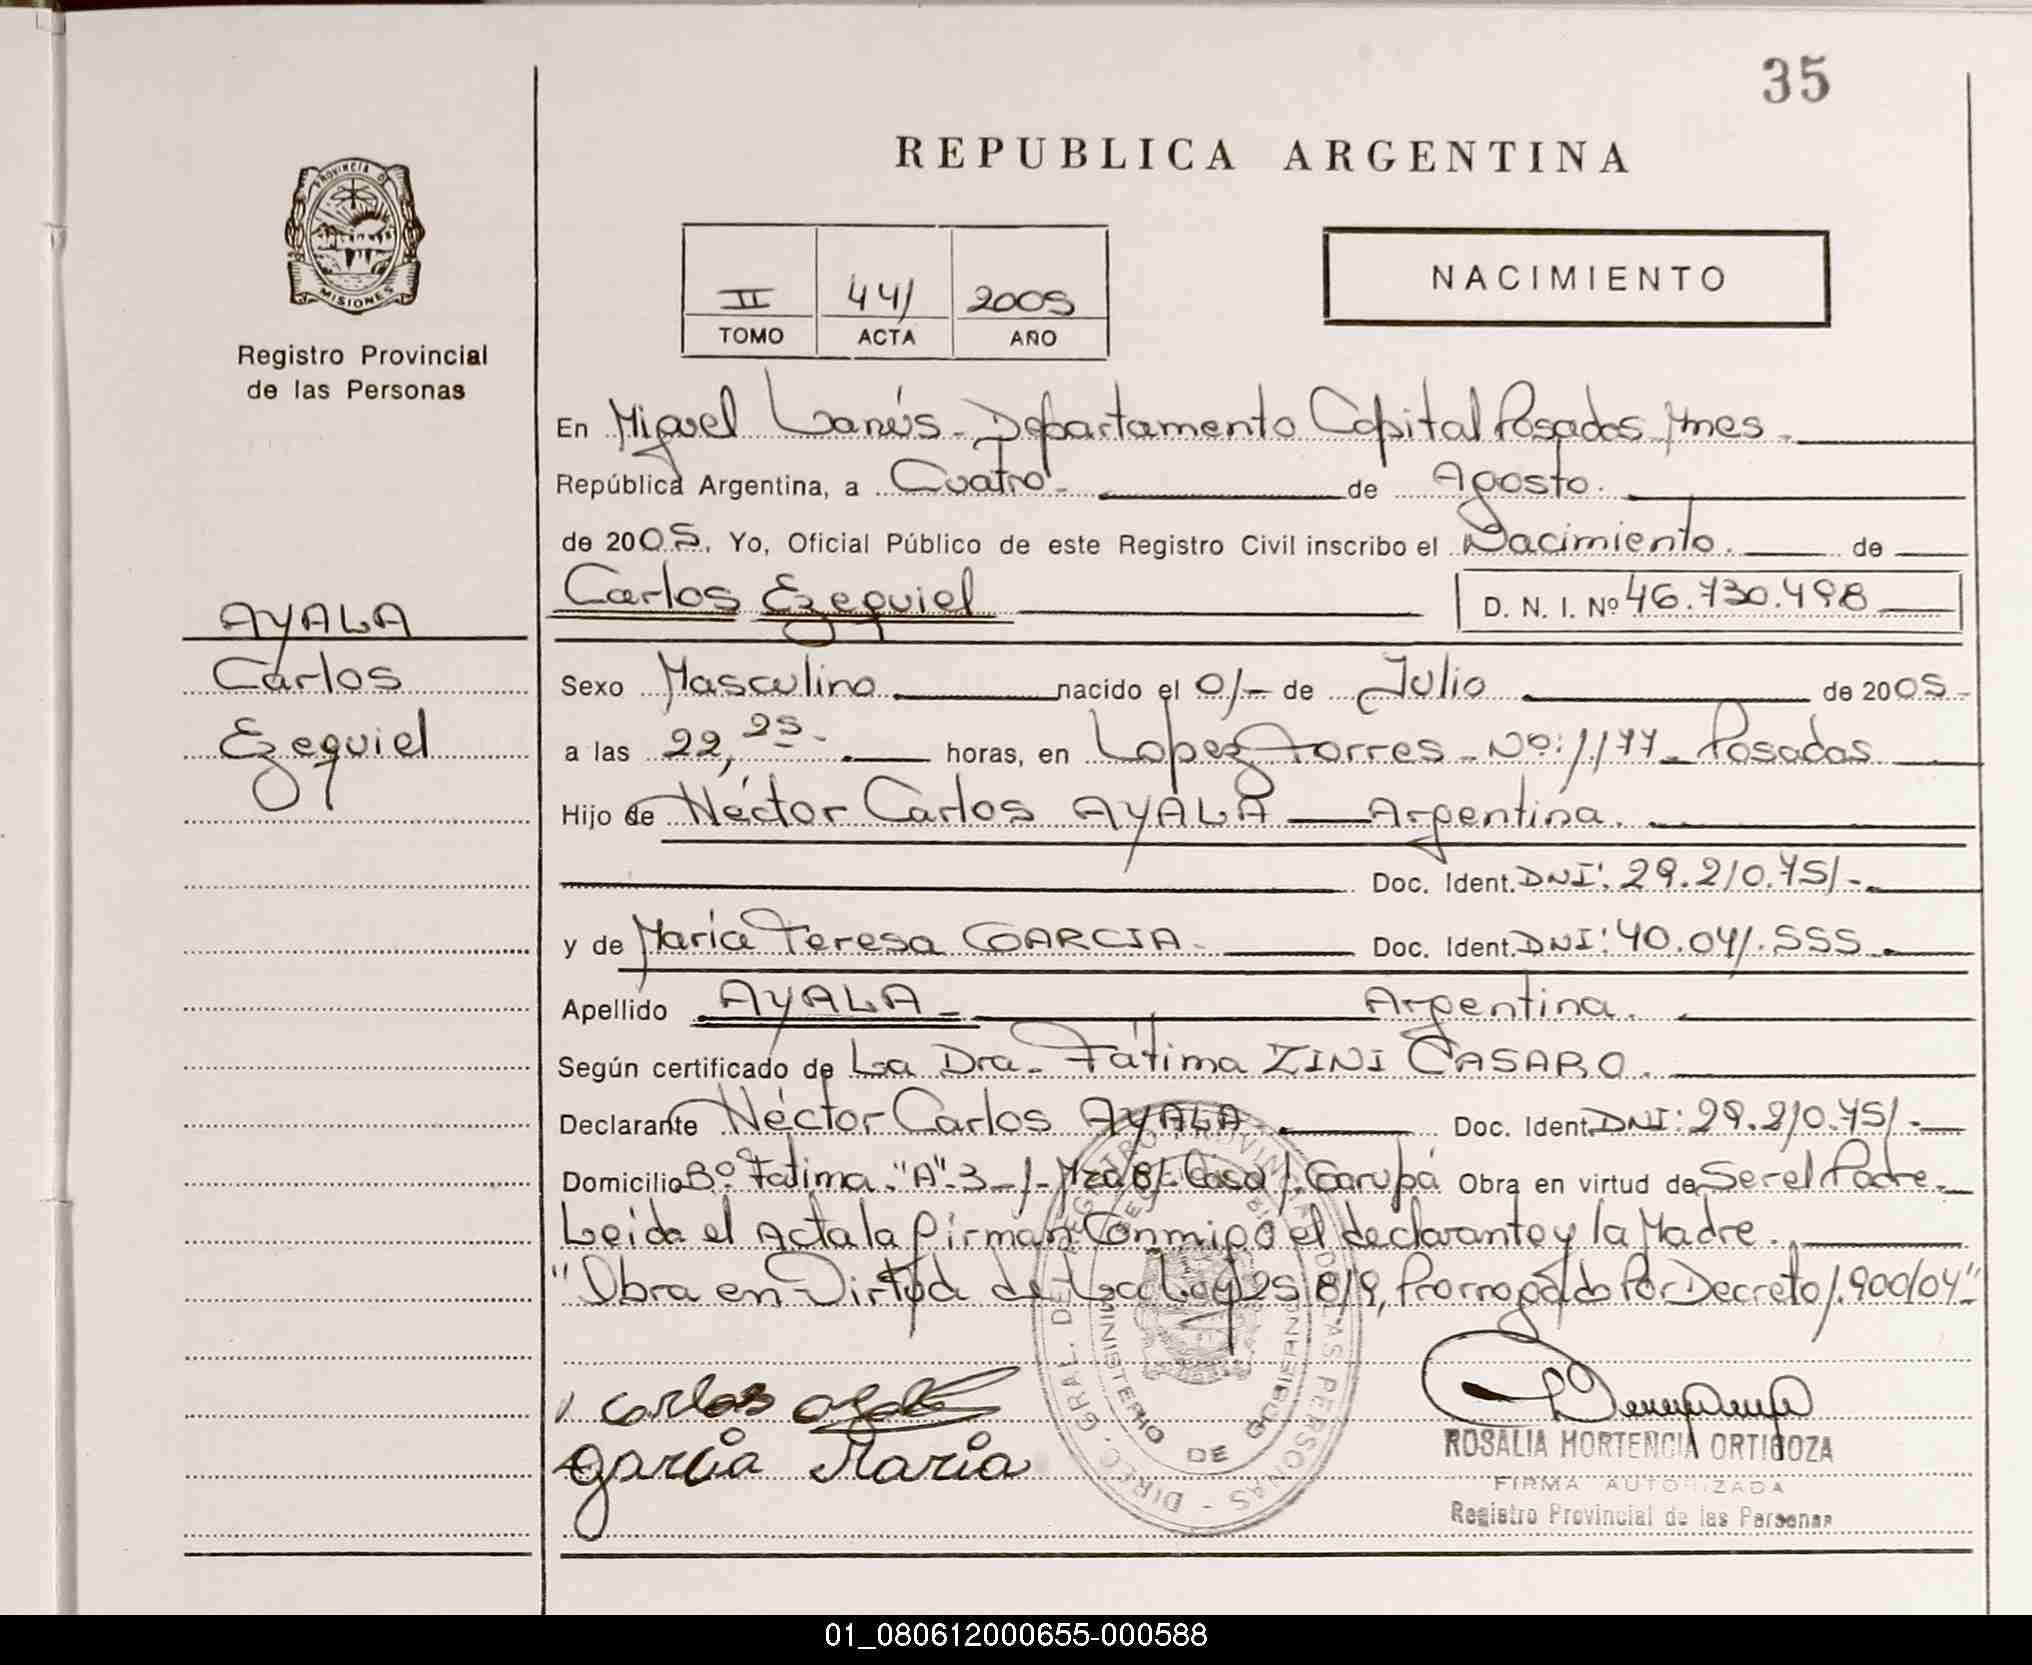 35
REPUBLICA ARGENTINA
PROVINCIA DE
MISIONES
Registro Provincial
de las Personas
II 441 2005
TOMO ACTA AÑO
NACIMIENTO
En Miguel Lanús - Departamento Capital Posadas Mnes -
República Argentina, a Cuatro - de Agosto.
de 2005. Yo, Oficial Público de este Registro Civil inscribo el Nacimiento. de
Carlos Ezequiel D. N. I. Nº 46.730.498
AYALA
Carlos
Ezequiel
Sexo Masculino nacido el 01- de Julio de 2005-
a las 22,25- horas, en Lopez Torres - Nº: 1.177 - Posadas
Hijo de Héctor Carlos AYALA Argentina.
Doc. Ident. DNI: 29.210.751-
y de María Teresa GARCIA - Doc. Ident. DNI: 40.041.555
Apellido AYALA - Argentina.
Según certificado de La Dra. Fátima ZINI CASARO.
Declarante Héctor Carlos AYALA - Doc. Ident. DNI: 29.210.751-
Domicilio Bº Fatima "A" 3-1- Mza B/. Casa 1. Garupá Obra en virtud de Ser el Padre -
Leida el Acta la firman Conmigo el declarante y la Madre.
"Obra en Virtud de la Ley 25.819, Prorrogado Por Decreto 1.900/04"
Carlos
Garcia Maria
ROSALIA HORTENCIA ORTIGOZA
FIRMA AUTORIZADA
Registro Provincial de las Personas
DIREC. GRAL. DEL REGISTRO PROVINCIAL DE LAS PERSONAS
MINISTERIO DE GOBIERNO
01_080612000655-000588